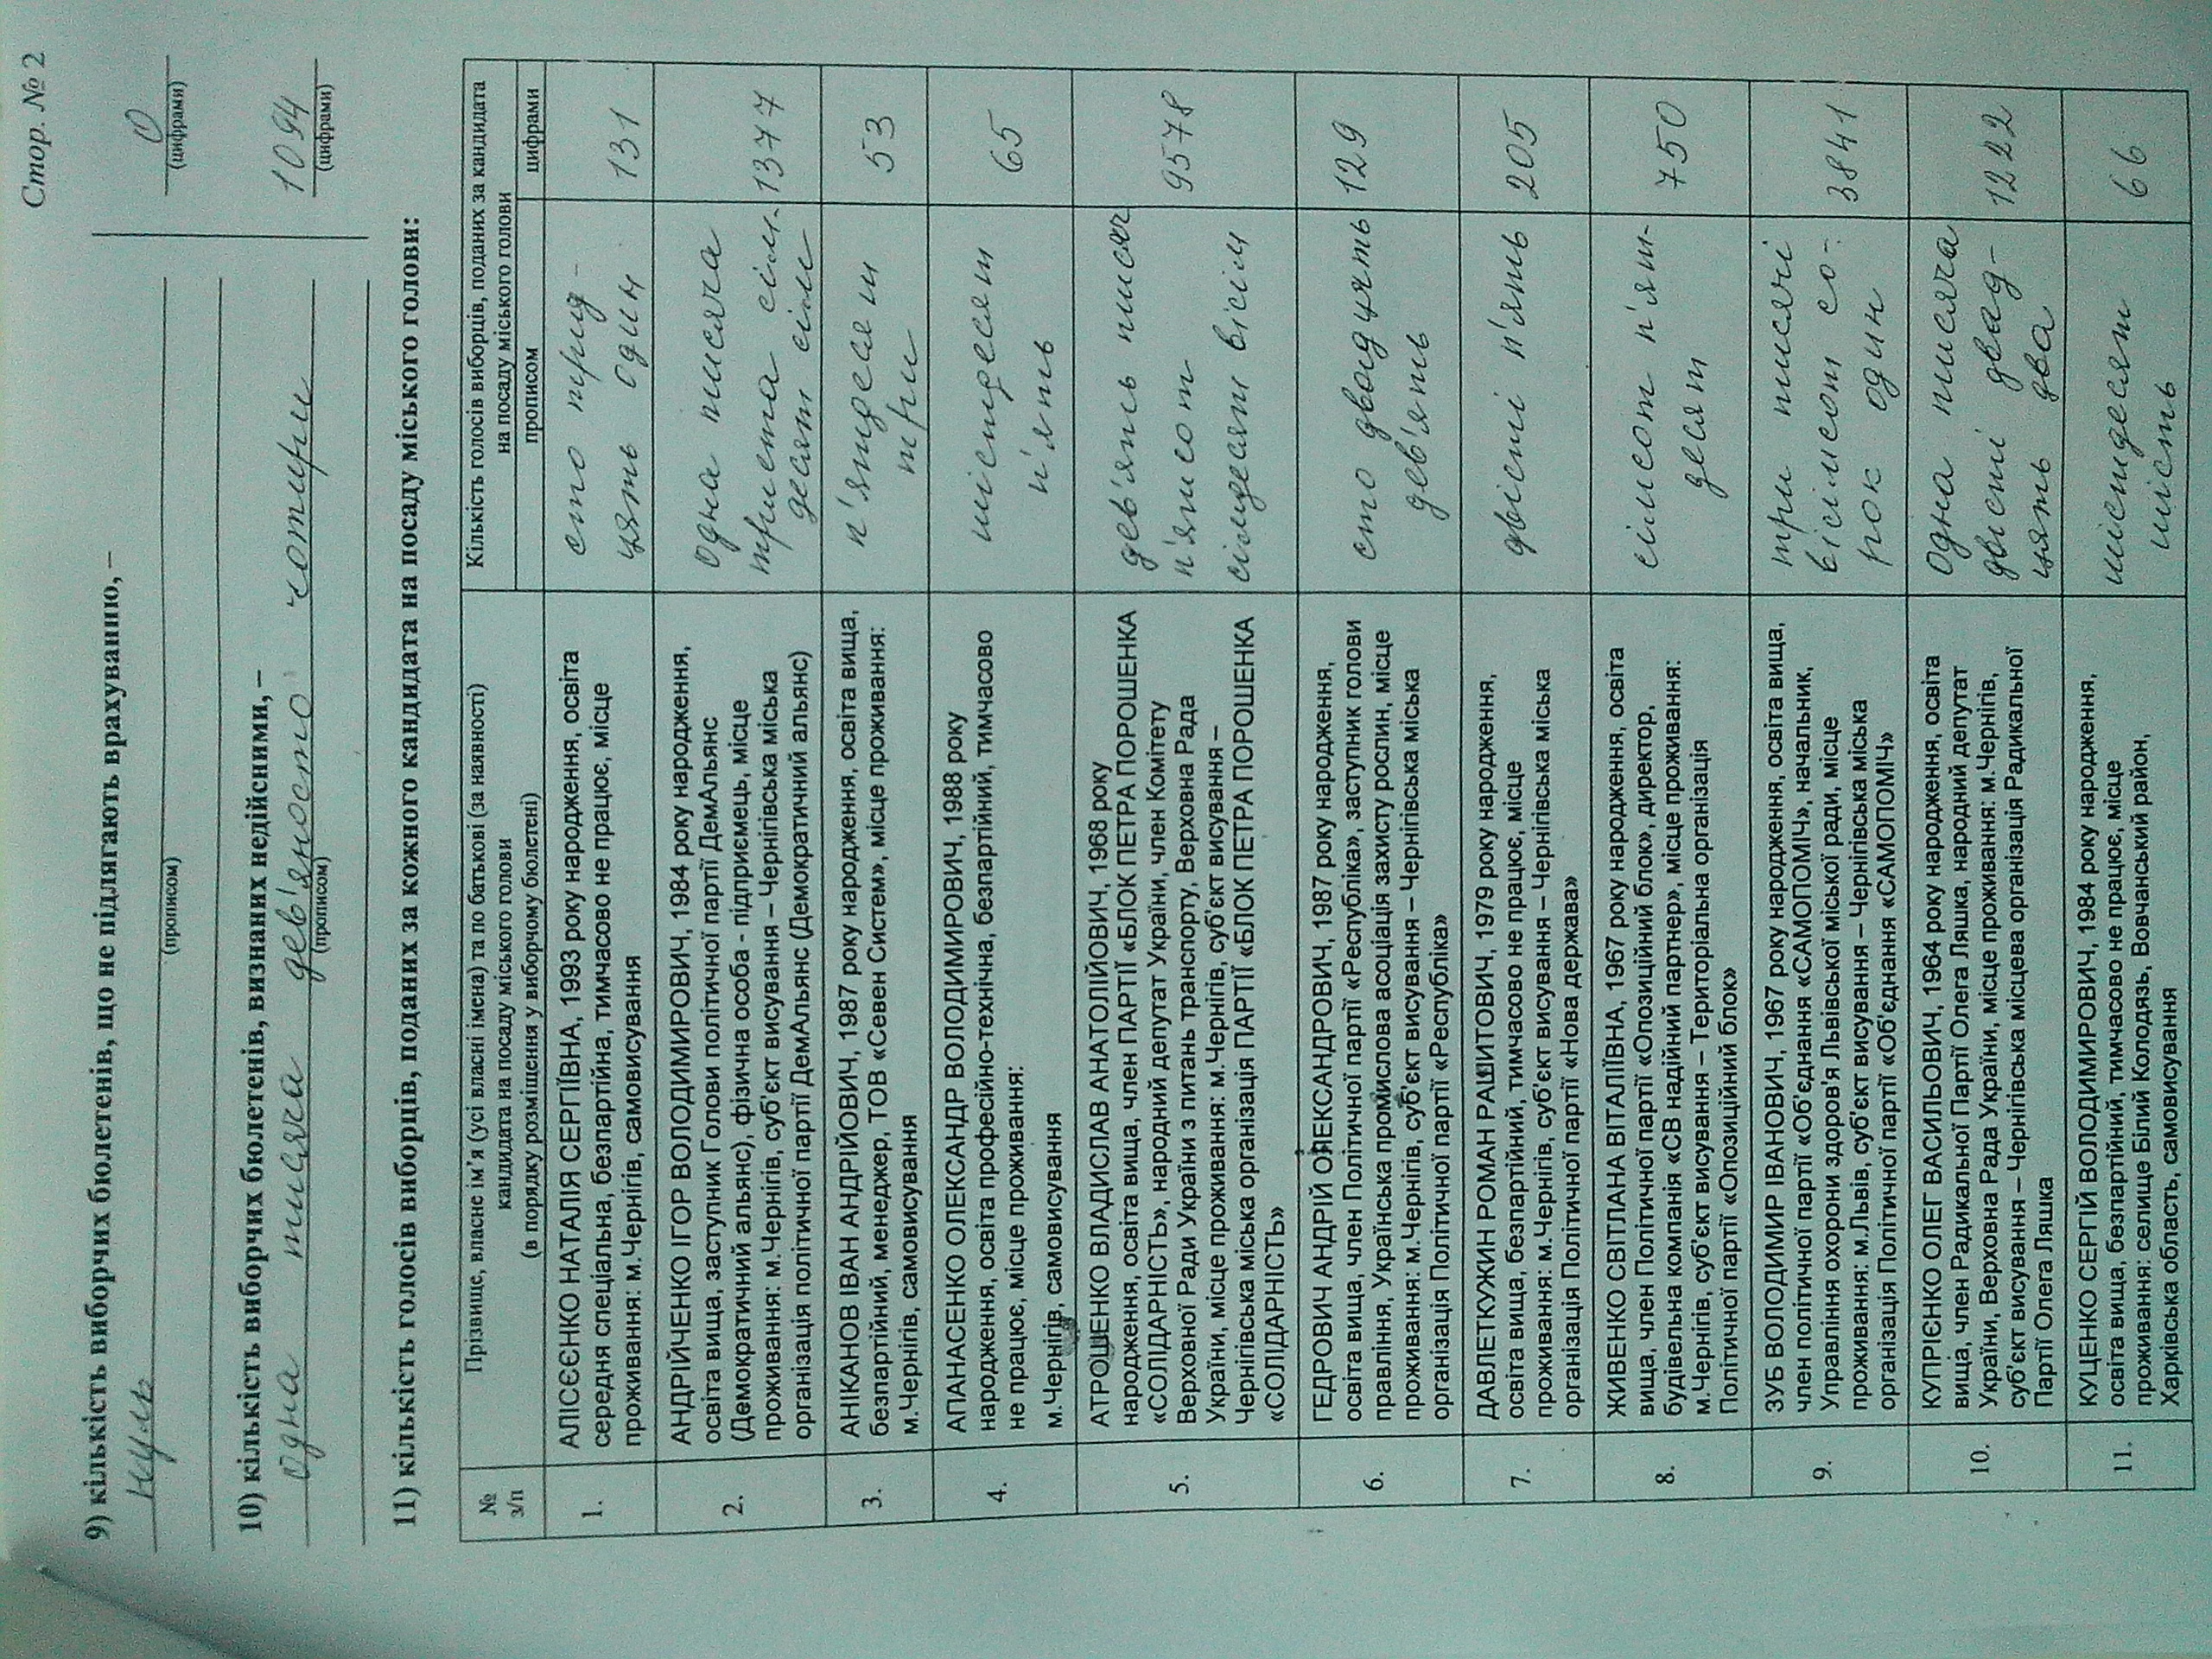 Стор. № 2
9) кількість виборчих бюлетенів, що не підлягають врахуванню, –
нуль 0
(прописом) (цифрами)
10) кількість виборчих бюлетенів, визнаних недійсними, –
одна тисяча дев'яносто чотири 1094
(прописом) (цифрами)
11) кількість голосів виборців, поданих за кожного кандидата на посаду міського голови:
№
з/п
Прізвище, власне ім'я (усі власні імена) та по батькові (за наявності)
кандидата на посаду міського голови
(в порядку розміщення у виборчому бюлетені)
Кількість голосів виборців, поданих за кандидата
на посаду міського голови
прописом цифрами
1.
АЛІСЄЄНКО НАТАЛІЯ СЕРГІЇВНА, 1993 року народження, освіта
середня спеціальна, безпартійна, тимчасово не працює, місце
проживання: м.Чернігів, самовисування
сто трид-
цять один
131
2.
АНДРІЙЧЕНКО ІГОР ВОЛОДИМИРОВИЧ, 1984 року народження,
освіта вища, заступник Голови політичної партії ДемАльянс
(Демократичний альянс), фізична особа - підприємець, місце
проживання: м.Чернігів, суб'єкт висування – Чернігівська міська
організація політичної партії ДемАльянс (Демократичний альянс)
одна тисяча
триста сім-
десят сім
1377
3.
АНІКАНОВ ІВАН АНДРІЙОВИЧ, 1987 року народження, освіта вища,
безпартійний, менеджер, ТОВ «Севен Систем», місце проживання:
м.Чернігів, самовисування
п'ятдесят
три
53
4.
АПАНАСЕНКО ОЛЕКСАНДР ВОЛОДИМИРОВИЧ, 1988 року
народження, освіта професійно-технічна, безпартійний, тимчасово
не працює, місце проживання:
м.Чернігів, самовисування
шістдесят
п'ять
65
5.
АТРОШЕНКО ВЛАДИСЛАВ АНАТОЛІЙОВИЧ, 1968 року
народження, освіта вища, член ПАРТІЇ «БЛОК ПЕТРА ПОРОШЕНКА
«СОЛІДАРНІСТЬ», народний депутат України, член Комітету
Верховної Ради України з питань транспорту, Верховна Рада
України, місце проживання: м.Чернігів, суб'єкт висування –
Чернігівська міська організація ПАРТІЇ «БЛОК ПЕТРА ПОРОШЕНКА
«СОЛІДАРНІСТЬ»
дев'ять тисяч
п'ятсот
сімдесят вісім
9578
6.
ГЕДРОВИЧ АНДРІЙ ОЛЕКСАНДРОВИЧ, 1987 року народження,
освіта вища, член Політичної партії «Республіка», заступник голови
правління, Українська промислова асоціація захисту рослин, місце
проживання: м.Чернігів, суб'єкт висування – Чернігівська міська
організація Політичної партії «Республіка»
сто двадцять
дев'ять
129
7.
ДАВЛЕТКУЖИН РОМАН РАШИТОВИЧ, 1979 року народження,
освіта вища, безпартійний, тимчасово не працює, місце
проживання: м.Чернігів, суб'єкт висування – Чернігівська міська
організація Політичної партії «Нова держава»
двісті п'ять
205
8.
ЖИВЕНКО СВІТЛАНА ВІТАЛІЇВНА, 1967 року народження, освіта
вища, член Політичної партії «Опозиційний блок», директор,
будівельна компанія «СВ надійний партнер», місце проживання:
м.Чернігів, суб'єкт висування – Територіальна організація
Політичної партії «Опозиційний блок»
сімсот п'ят-
десят
750
9.
ЗУБ ВОЛОДИМИР ІВАНОВИЧ, 1967 року народження, освіта вища,
член політичної партії «Об'єднання «САМОПОМІЧ», начальник,
Управління охорони здоров'я Львівської міської ради, місце
проживання: м.Львів, суб'єкт висування – Чернігівська міська
організація Політичної партії «Об'єднання «САМОПОМІЧ»
три тисячі
вісімсот со-
рок один
3841
10.
КУПРІЄНКО ОЛЕГ ВАСИЛЬОВИЧ, 1964 року народження, освіта
вища, член Радикальної Партії Олега Ляшка, народний депутат
України, Верховна Рада України, місце проживання: м.Чернігів,
суб'єкт висування – Чернігівська місцева організація Радикальної
Партії Олега Ляшка
одна тисяча
двісті двад-
цять два
1222
11.
КУЦЕНКО СЕРГІЙ ВОЛОДИМИРОВИЧ, 1984 року народження,
освіта вища, безпартійний, тимчасово не працює, місце
проживання: селище Білий Колодязь, Вовчанський район,
Харківська область, самовисування
шістдесят
шість
66